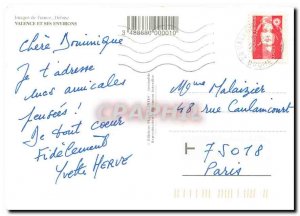 Images de France Drôme
VALENCE ET SES ENVIRONS
3 486680 000019
Chère Dominique
Je t'adresse
mes amicales
pensées!
De tout coeur
Fidèlement
Yvette HERVE
Mme Malaizier
48 rue Caulaincourt
75018
Paris